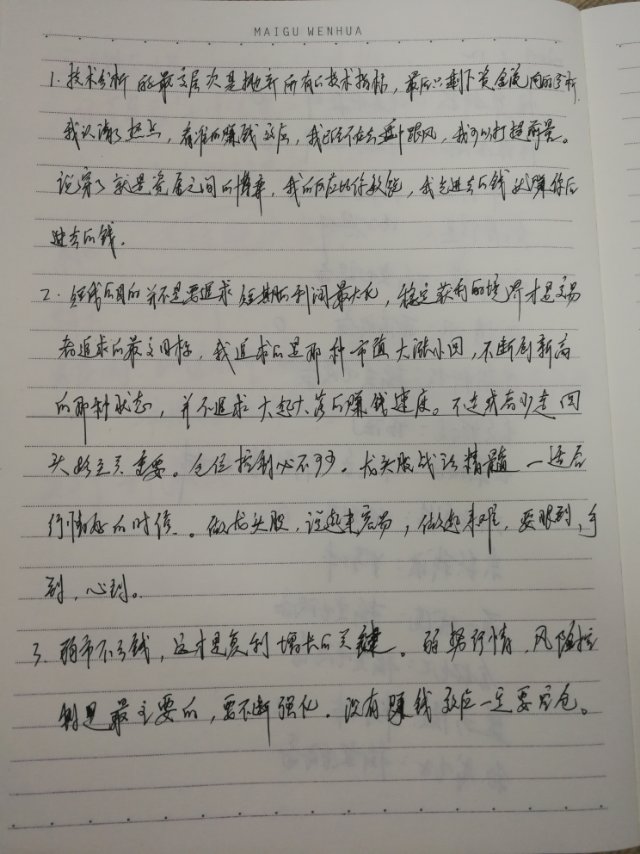 MAIGU WENHUA
1. 技术分析的最高层次是抛弃所有的技术指标，最后只剩下资金流向的分析
我认清了热点，看准的赚钱效应，我已经不会盘中跟风，我可以打提前量。
说穿了就是资金之间的博弈，我的反应比你敏锐，我先进去的钱就赚你后
进去的钱。
2. 短线的目的并不是要追求短期的利润最大化，稳定获利的境界才是交易
者追求的最终目标，我追求的是那种市值大涨小回，不断创新高
的那种状态，并不追求大起大落的赚钱速度。不走或者少走回
头路至关重要。仓位控制必不可少。龙头股战法精髓一适应
行情好的时候。做龙头股，说起来容易，做起来难，要眼到，手
到，心到。
3. 弱市不亏钱，这才是复利增长的关键。弱势行情，风险控
制是最主要的，要不断强化。没有赚钱效应一定要空仓。